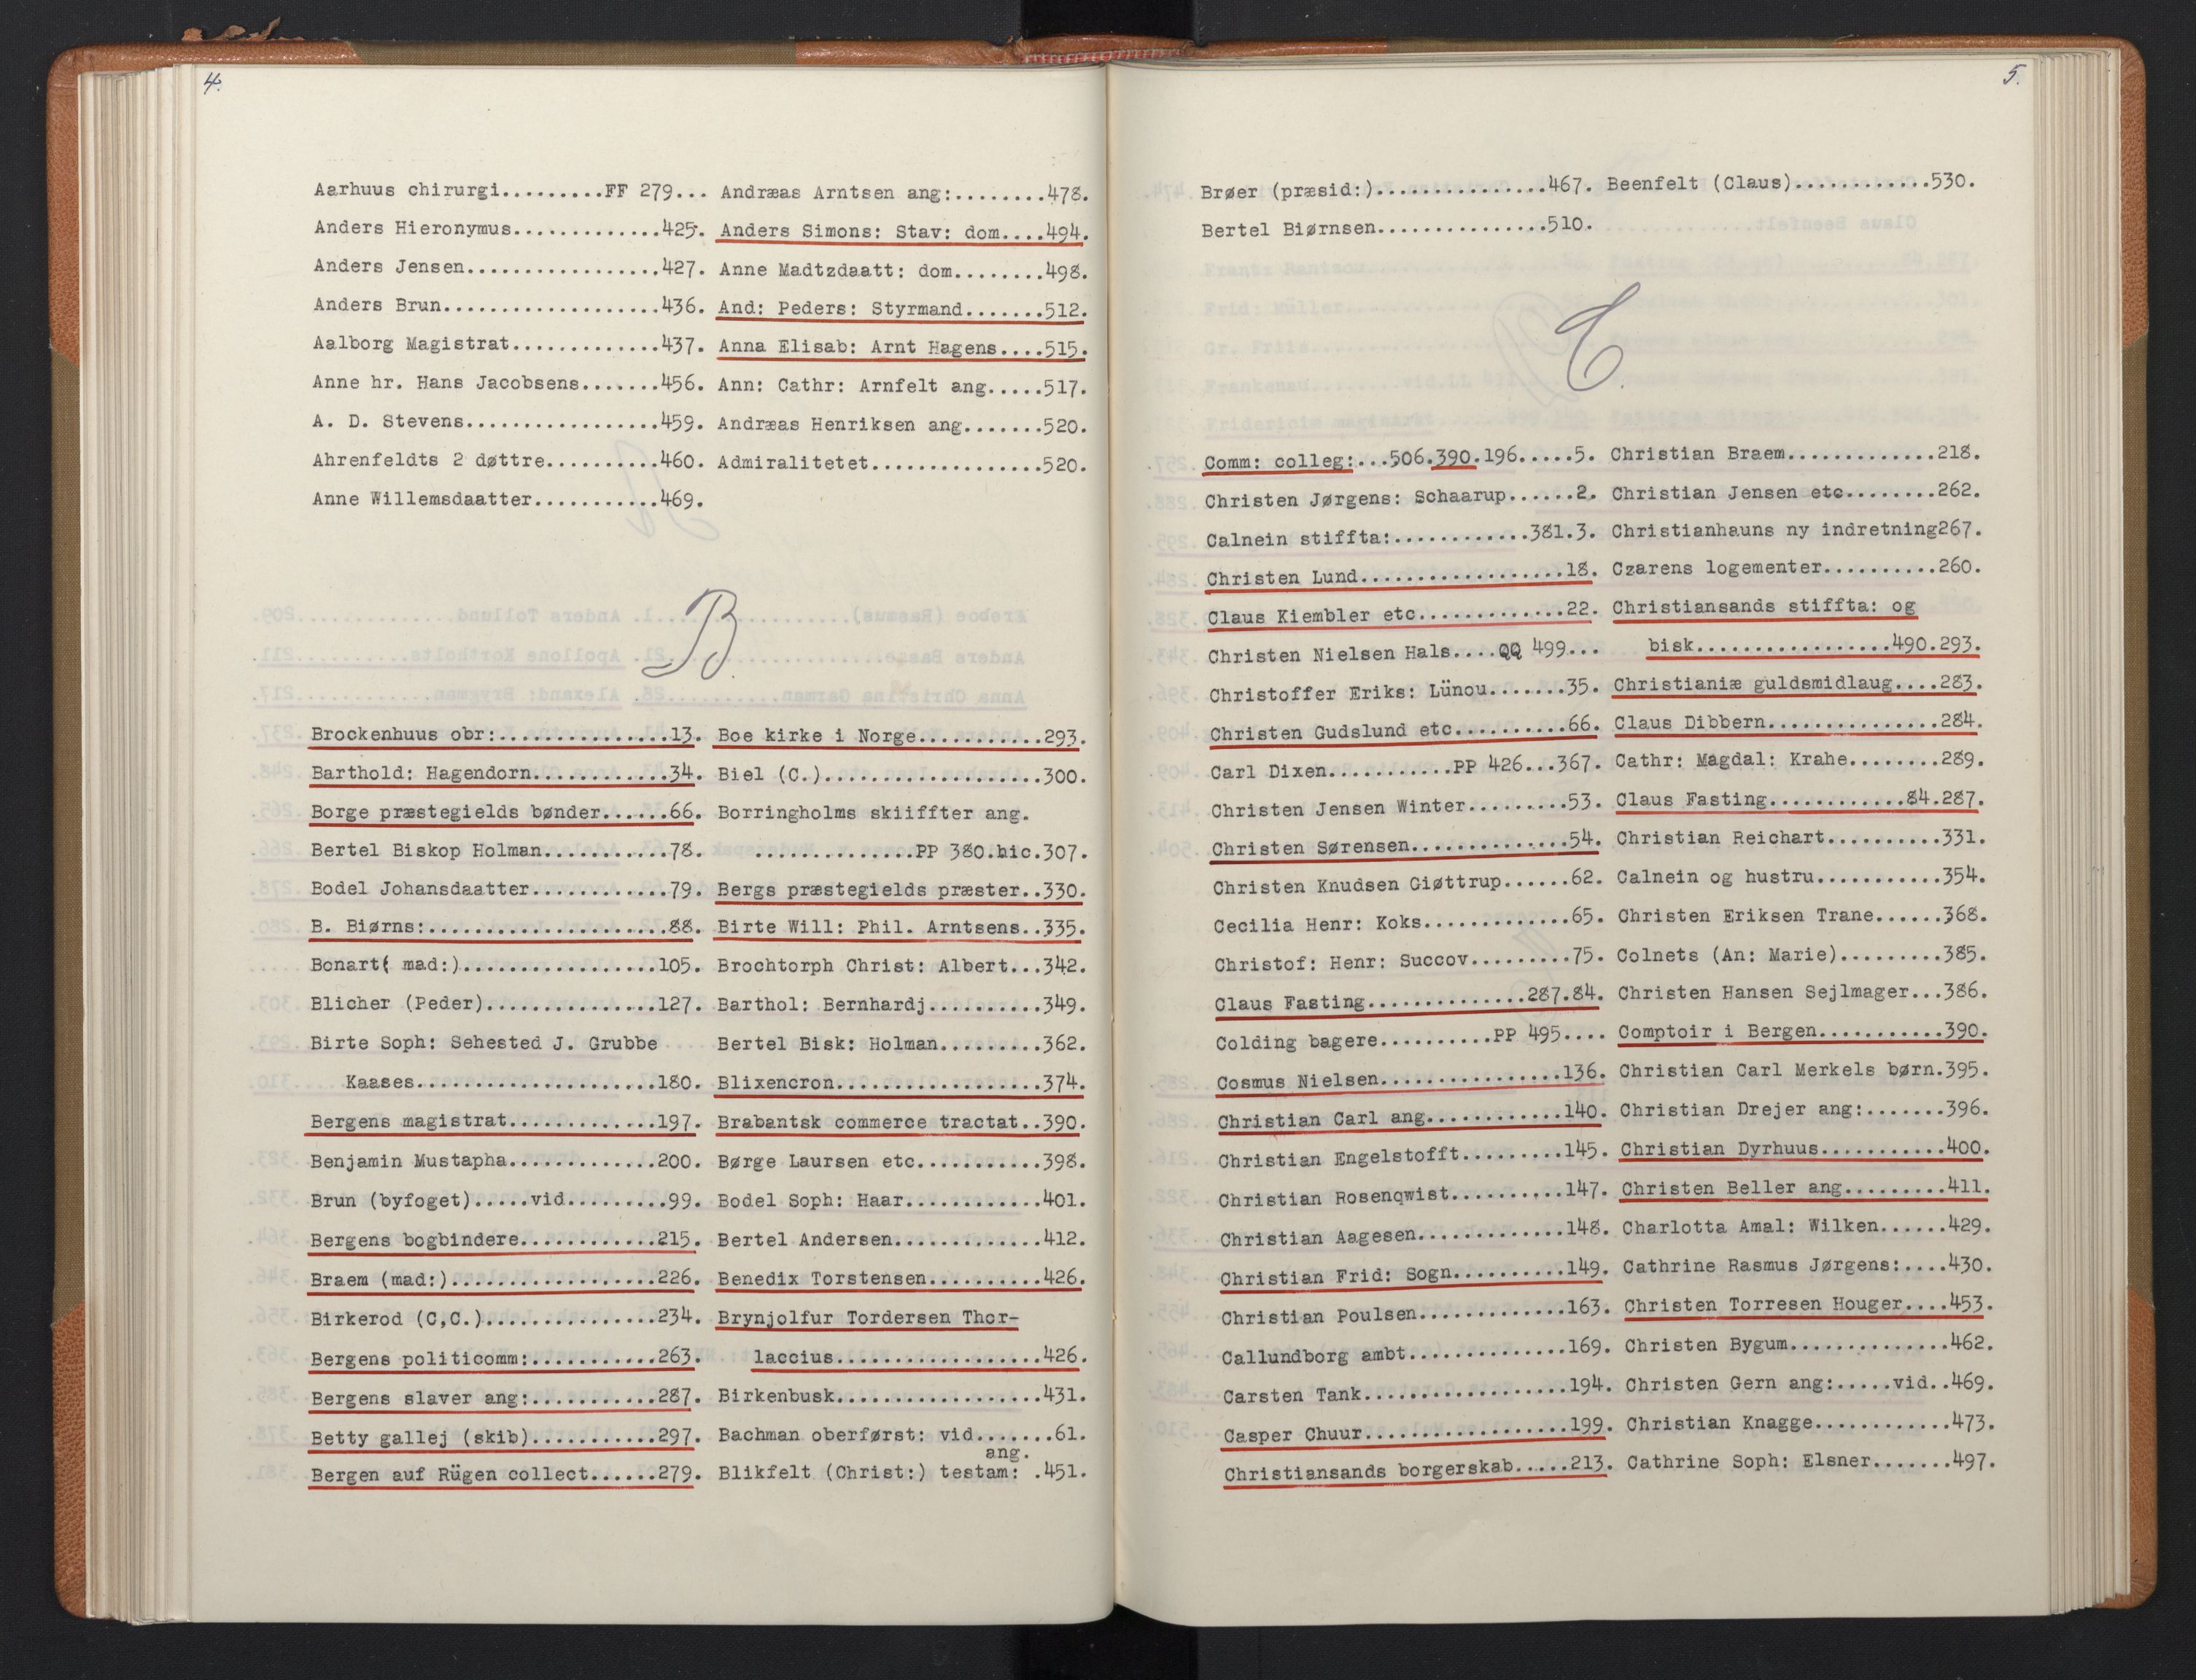 4.
Aarhuus chirurgi.........FF 279...
Anders Hieronymus.............425.
Anders Jensen.................427.
Anders Brun...................436.
Aalborg Magistrat.............437.
Anne hr. Hans Jacobsens.......456.
A. D. Stevens.................459.
Ahrenfeldts 2 døttre..........460.
Anne Willemsdaatter...........469.
Andræas Arntsen ang:........478.
Anders Simons: Stav: dom....494.
Anne Madtzdaatt: dom........498.
And: Peders: Styrmand.......512.
Anna Elisab: Arnt Hagens....515.
Ann: Cathr: Arnfelt ang.....517.
Andræas Henriksen ang.......520.
Admiralitetet...............520.
B.
Brockenhuus obr:...............13.
Barthold: Hagendorn............34.
Borge præstegields bønder......66.
Bertel Biskop Holman...........78.
Bodel Johansdaatter............79.
B. Biørns:.....................88.
Bonart( mad:).................105.
Blicher (Peder)...............127.
Birte Soph: Sehested J. Grubbe
Kaases.....................180.
Bergens magistrat.............197.
Benjamin Mustapha.............200.
Brun (byfoget).....vid.........99.
Bergens bogbindere............215.
Braem (mad:)..................226.
Birkerod (C,C.)...............234.
Bergens politicomm:...........263.
Bergens slaver ang:...........287.
Betty gallej (skib)...........297.
Bergen auf Rügen collect......279.
Boe kirke i Norge...........293.
Biel (C.)...................300.
Borringholms skiiffter ang.
..............PP 380.hic.307.
Bergs præstegields præster..330.
Birte Will: Phil. Arntsens..335.
Brochtorph Christ: Albert...342.
Barthol: Bernhardj..........349.
Bertel Bisk: Holman.........362.
Blixencron..................374.
Brabantsk commerce tractat..390.
Børge Laursen etc...........398.
Bodel Soph: Haar............401.
Bertel Andersen.............412.
Benedix Torstensen..........426.
Brynjolfur Tordersen Thor-
laccius..................426.
Birkenbusk..................431.
Bachman oberførst: vid.......61.
ang.
Blikfelt (Christ:) testam: .451.
5.
Brøer (præsid:)...............467.
Bertel Biørnsen...............510.
Beenfelt (Claus)............530.
C.
Comm: colleg:...506.390.196.....5.
Christen Jørgens: Schaarup......2.
Calnein stiffta:............381.3.
Christen Lund..................18.
Claus Kiembler etc.............22.
Christen Nielsen Hals....QQ 499...
Christoffer Eriks: Lünou.......35.
Christen Gudslund etc..........66.
Carl Dixen...........PP 426...367.
Christen Jensen Winter.........53.
Christen Sørensen..............54.
Christen Knudsen Giøttrup......62.
Cecilia Henr: Koks.............65.
Christof: Henr: Succov.........75.
Claus Fasting..............287.84.
Colding bagere..........PP 495....
Cosmus Nielsen................136.
Christian Carl ang............140.
Christian Engelstofft.........145.
Christian Rosenqwist..........147.
Christian Aagesen.............148.
Christian Frid: Sogn..........149.
Christian Poulsen.............163.
Callundborg ambt..............169.
Carsten Tank..................194.
Casper Chuur..................199.
Christiansands borgerskab.....213.
Christian Braem.............218.
Christian Jensen etc........262.
Christianhauns ny indretning267.
Czarens logementer..........260.
Christiansands stiffta: og
bisk.................490.293.
Christianiæ guldsmidlaug....283.
Claus Dibbern...............284.
Cathr: Magdal: Krahe........289.
Claus Fasting............84.287.
Christian Reichart..........331.
Calnein og hustru...........354.
Christen Eriksen Trane......368.
Colnets (An: Marie).........385.
Christen Hansen Sejlmager...386.
Comptoir i Bergen...........390.
Christian Carl Merkels børn.395.
Christian Drejer ang:.......396.
Christian Dyrhuus...........400.
Christen Beller ang.........411.
Charlotta Amal: Wilken......429.
Cathrine Rasmus Jørgens:....430.
Christen Torresen Houger....453.
Christen Bygum..............462.
Christen Gern ang:.....vid..469.
Christian Knagge............473.
Cathrine Soph: Elsner.......497.